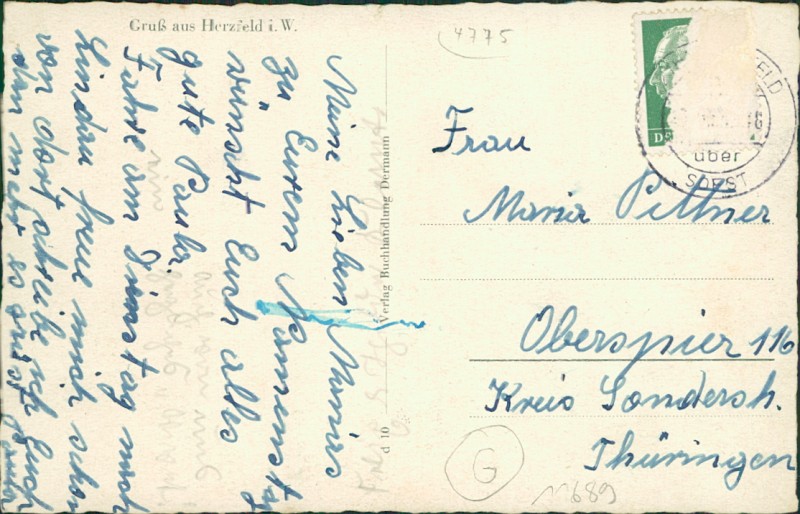 Gruß aus Herzfeld i. W.
4775
Meine Lieben
zu Eurem Namenstag
wünscht Euch alles
gute Paula.
Fahre am Dienstag nach
Lindau freue mich schon
von dort schreibe ich Euch
dann mehr es grüßt
Verlag Buchhandlung Dermann
d 10
über
SOEST
Frau
Maria Pittner
Oberspier 116
Kreis Sondersh.
Thüringen
G
11689